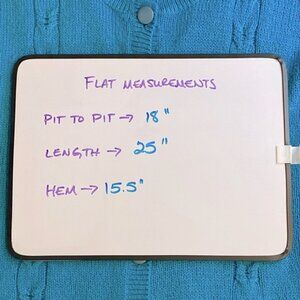 FLAT MEASUREMENTS
PIT TO PIT → 18"
LENGTH → 25"
HEM → 15.5"